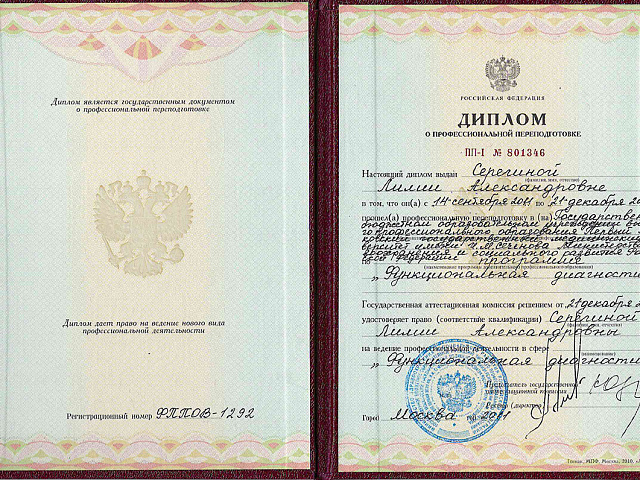 Диплом является государственным документом
о профессиональной переподготовке
Диплом дает право на ведение нового вида
профессиональной деятельности
Регистрационный номер ФППОВ-1292
РОССИЙСКАЯ ФЕДЕРАЦИЯ
ДИПЛОМ
О ПРОФЕССИОНАЛЬНОЙ ПЕРЕПОДГОТОВКЕ
ПП-I № 801346
Настоящий диплом выдан Серегиной
(фамилия, имя, отчество)
Лилии Александровне
в том, что он(а) с 14 сентября 2011 по 21 декабря 20
прошел(а) профессиональную переподготовку в (на) Государствен
бюджетном образовательном учреждении
профессионального образования Первый
государственный медицинский
имени И.М. Сеченова
и социального развития
по программе
(наименование программы дополнительного профессионального образования)
„Функциональная диагности
Государственная аттестационная комиссия решением от 21 декабря 2
удостоверяет право (соответствие квалификации) Серегиной
(фамилия, имя, отчество)
Лилии Александровны
на ведение профессиональной деятельности в сфере
(наименование)
„Функциональная диагности
Председатель государственно
аттестационной комиссии
Ректор (директор)
Город Москва 2011